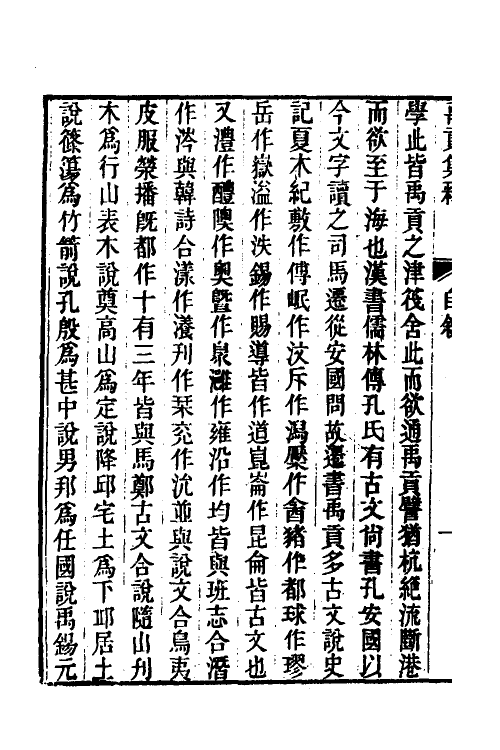 學此皆禹貢之津筏舍此而欲通禹貢譬猶杭絕流斷港
而欲至于海也漢書儒林傳孔氏有古文尙書孔安國以
今文字讀之司馬遷從安國問故遷書禹貢多古文說史
記夏本紀敷作傅岷作汶斥作潟壓作酓豬作都球作璆
岳作嶽溢作泆錫作賜導皆作道崑崙作昆侖皆古文也
又澧作醴隩作奧曁作泉灉作雍沿作均皆與班志合潛
作涔與韓詩合漾作瀁刋作栞兖作沇並與說文合鳥夷
皮服滎播旣都作十有三年皆與馬鄭古文合說隨山刋
木爲行山表木說奠高山爲定說降邱宅土爲下邱居土
說篠簜爲竹箭說孔殷爲甚中說男邦爲任國說禹錫元